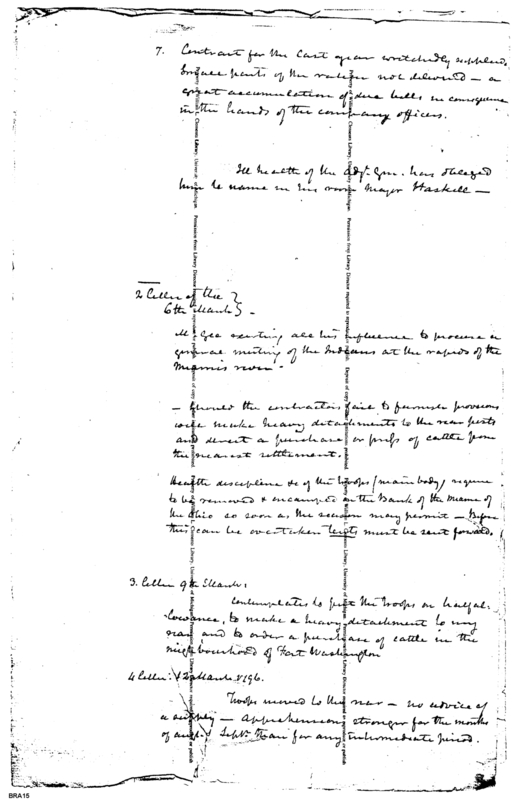 7. Contract for the last year wretchedly supplied
Small parts of the ration not delivered — a
great accumulation of due bills in consequence
in the hands of the company officers.
Ill health of the Adjt. Gen. has obliged
him to name in his room Major Haskell —
2 Letter of the
6th March
McGee exerting all his influence to procure a
general meeting of the Indians at the rapids of the
Miamis river.
— Should the contractors fail to furnish provisions
will make heavy detachments to the rear posts
and direct a purchase or press of cattle from
the nearest settlement.
Health discipline &c of the troops (main body) require
to be removed & encamped on the Bank of the Miami of
the Ohio so soon as the season may permit — Before
this can be overtaken tents must be sent forward.
3. Letter 9th March:
Contemplates to put the troops on half al-
lowance, to make a heavy detachment to my
rear and to order a purchase of cattle in the
neighbourhood of Fort Washington
4 Letter: 12 March 1796.
Troops moved to the rear — no advice of
a supply — apprehensions stronger for the months
of Augt. & Septr. than for any intermediate period.
BRA15